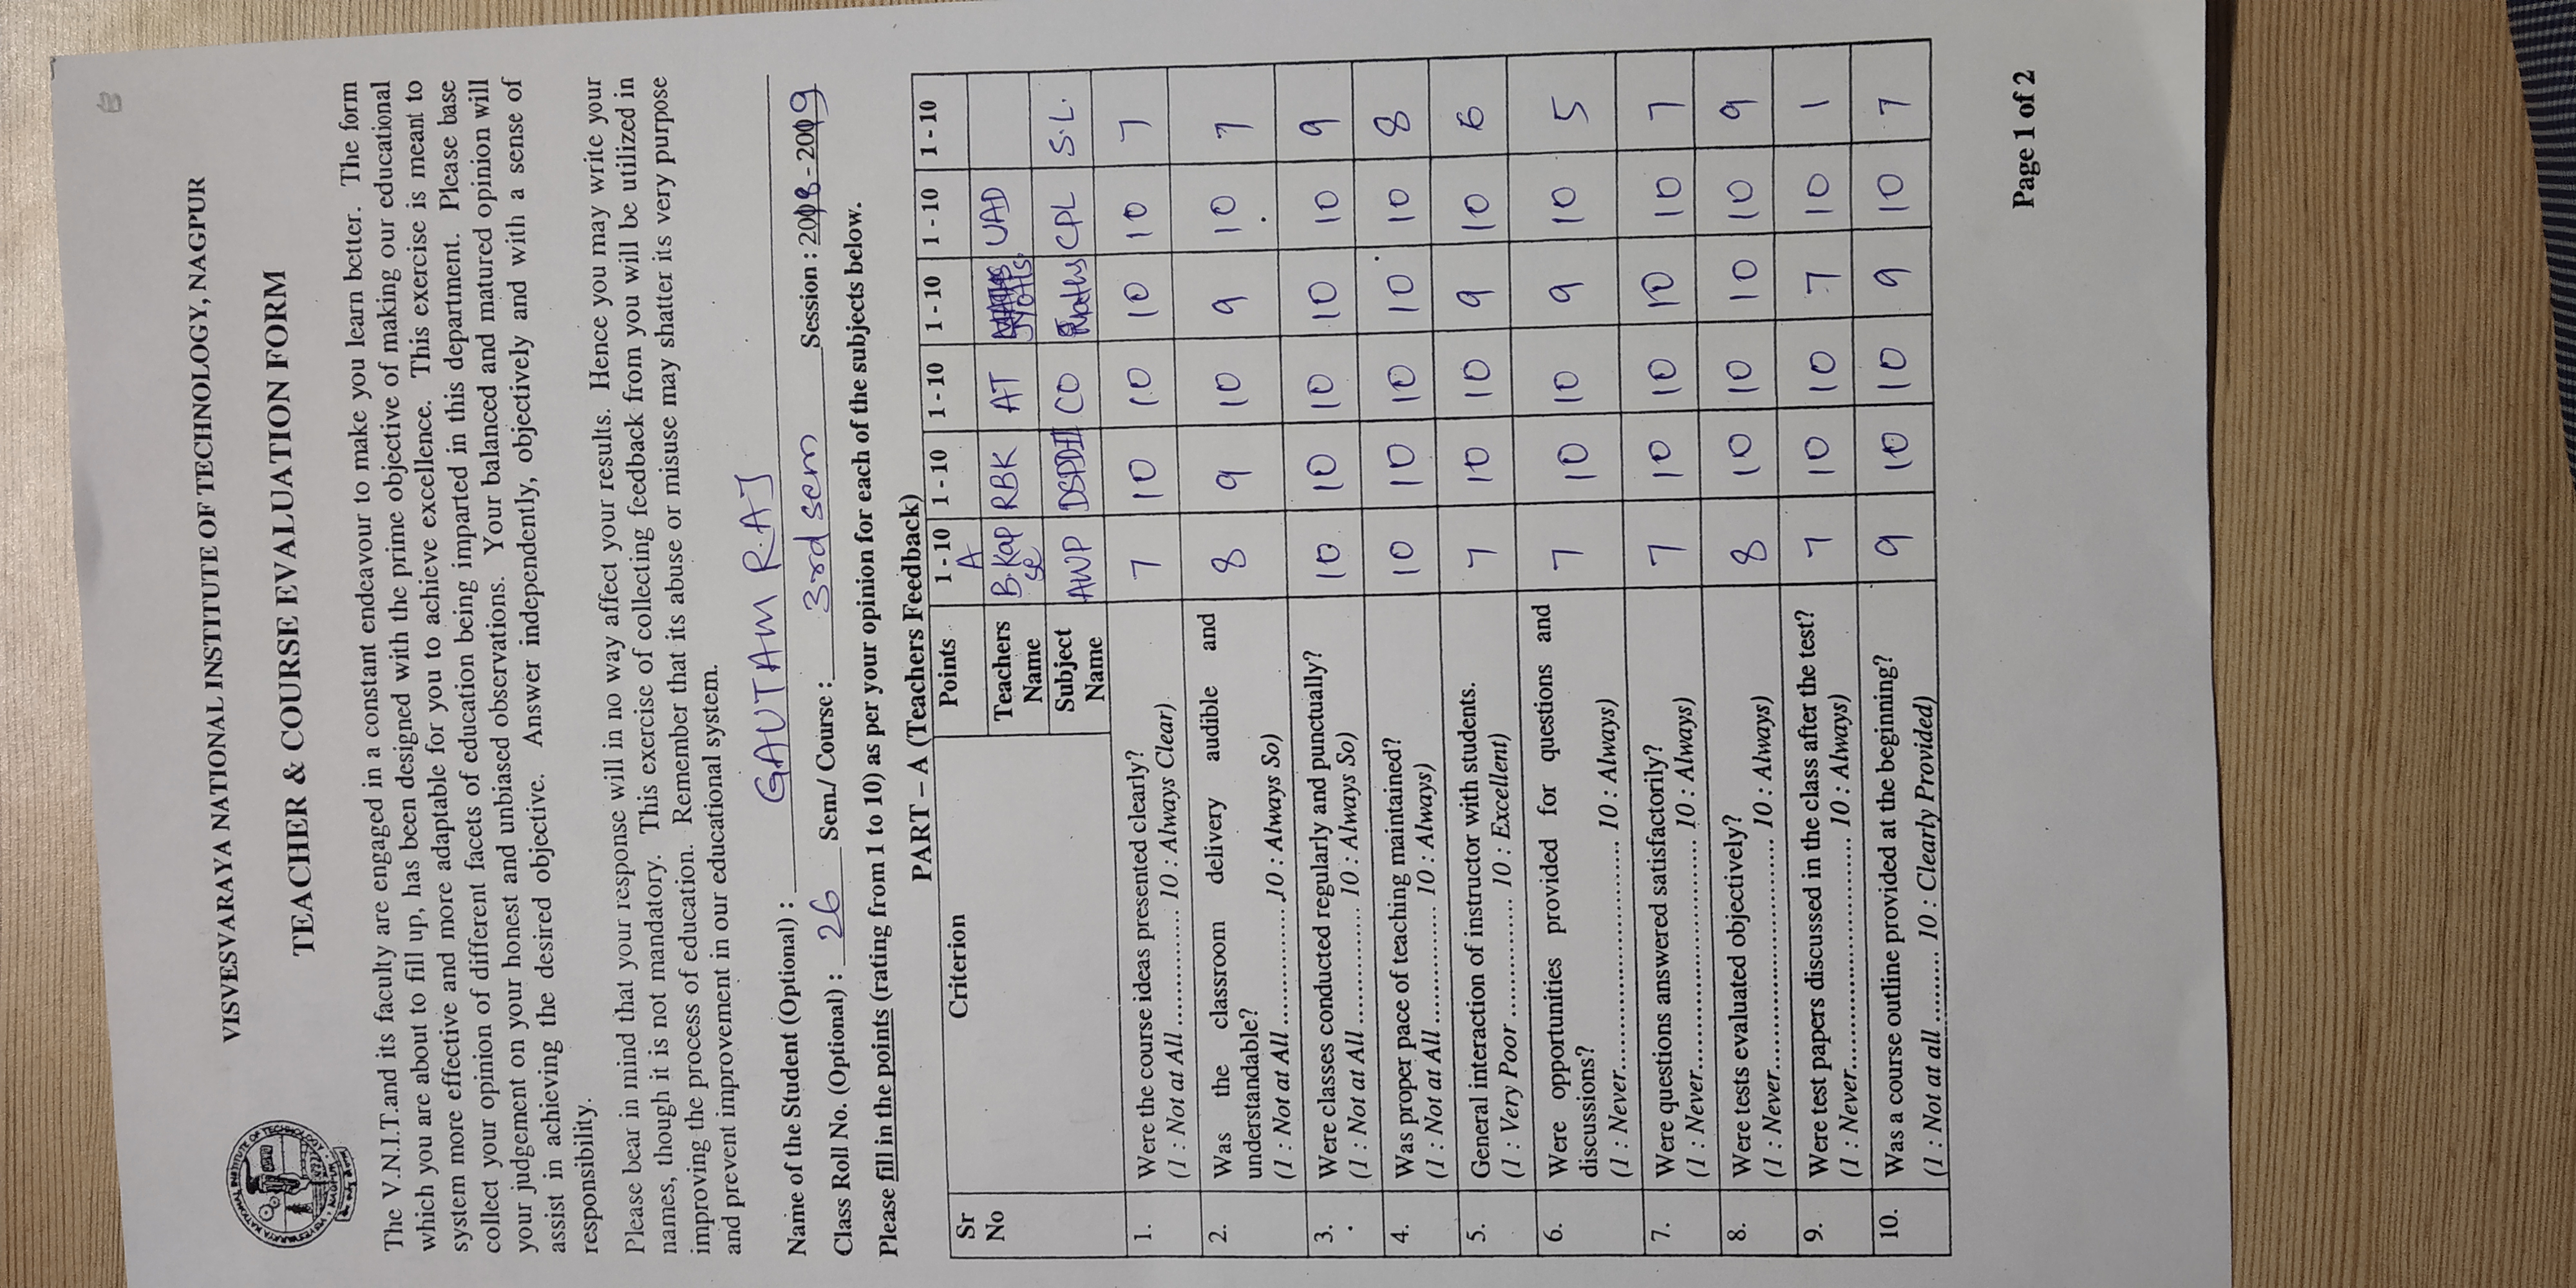 VISVESVARAYA NATIONAL INSTITUTE OF TECHNOLOGY, NAGPUR
TEACHER & COURSE EVALUATION FORM
The V.N.I.T.and its faculty are engaged in a constant endeavour to make you learn better. The form
which you are about to fill up, has been designed with the prime objective of making our educational
system more effective and more adaptable for you to achieve excellence. This exercise is meant to
collect your opinion of different facets of education being imparted in this department. Please base
your judgement on your honest and unbiased observations. Your balanced and matured opinion will
assist in achieving the desired objective. Answer independently, objectively and with a sense of
responsibility.
Please bear in mind that your response will in no way affect your results. Hence you may write your
names, though it is not mandatory. This exercise of collecting feedback from you will be utilized in
improving the process of education. Remember that its abuse or misuse may shatter its very purpose
and prevent improvement in our educational system.
Name of the Student (Optional) : GAUTAM RAJ
Class Roll No. (Optional) : 26 Sem./ Course : 3rd sem Session : 2018-2019
Please fill in the points (rating from 1 to 10) as per your opinion for each of the subjects below.
PART – A (Teachers Feedback)
Sr No Criterion Points 1 - 10 1 - 10 1 - 10 1 - 10 1 - 10 1 - 10
Teachers Name A B.Kapse RBK AT UAD
Subject Name AWP CO Maths CPL S.L.
1. Were the course ideas presented clearly? 7 10 10 10 10 7
(1 : Not at All ............. 10 : Always Clear)
2. Was the classroom delivery audible and 8 9 10 9 10 7
understandable?
(1 : Not at All ............. 10 : Always So)
3. Were classes conducted regularly and punctually? 10 10 10 10 10 9
(1 : Not at All ............. 10 : Always So)
4. Was proper pace of teaching maintained? 10 10 10 10 10 8
(1 : Not at All ............. 10 : Always)
5. General interaction of instructor with students. 7 10 10 9 10 6
(1 : Very Poor ............. 10 : Excellent)
6. Were opportunities provided for questions and 7 10 10 9 10 5
discussions?
(1 : Never............................ 10 : Always)
7. Were questions answered satisfactorily? 7 10 10 10 10 7
(1 : Never............................ 10 : Always)
8. Were tests evaluated objectively? 8 10 10 10 10 9
(1 : Never............................ 10 : Always)
9. Were test papers discussed in the class after the test? 7 10 10 7 10 1
(1 : Never............................ 10 : Always)
10. Was a course outline provided at the beginning? 9 10 10 9 10 7
(1 : Not at all ......... 10 : Clearly Provided)
Page 1 of 2